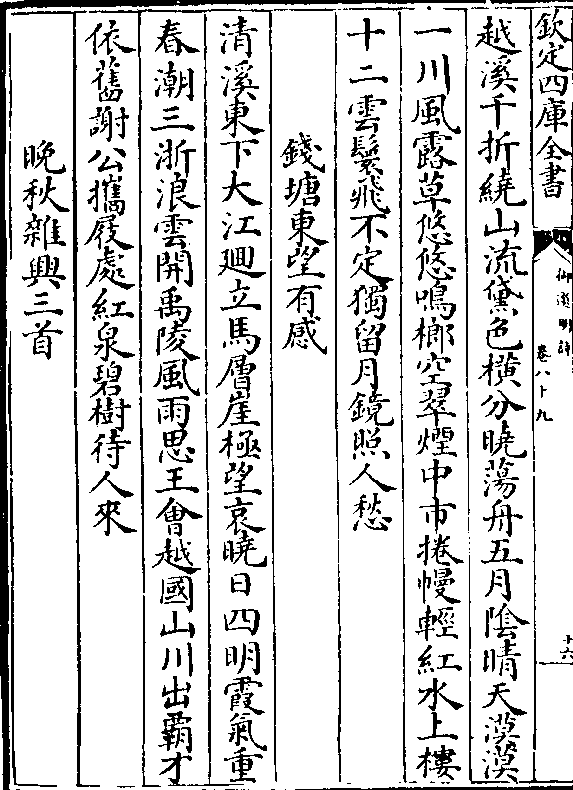 欽定四庫全書
御選明詩
卷八十九
十六
越溪千折繞山流黛色橫分曉蕩舟五月陰晴天漠漠
一川風露草悠悠鳴榔空翠煙中市捲幔輕紅水上樓
十二雲鬟飛不定獨留月鏡照人愁
錢塘東望有感
清溪東下大江廻立馬層崖極望哀曉日四明霞氣重
春潮三浙浪雲開禹陵風雨思王會越國山川出霸才
依舊謝公攜屐處紅泉碧樹待人來
晚秋雜興三首